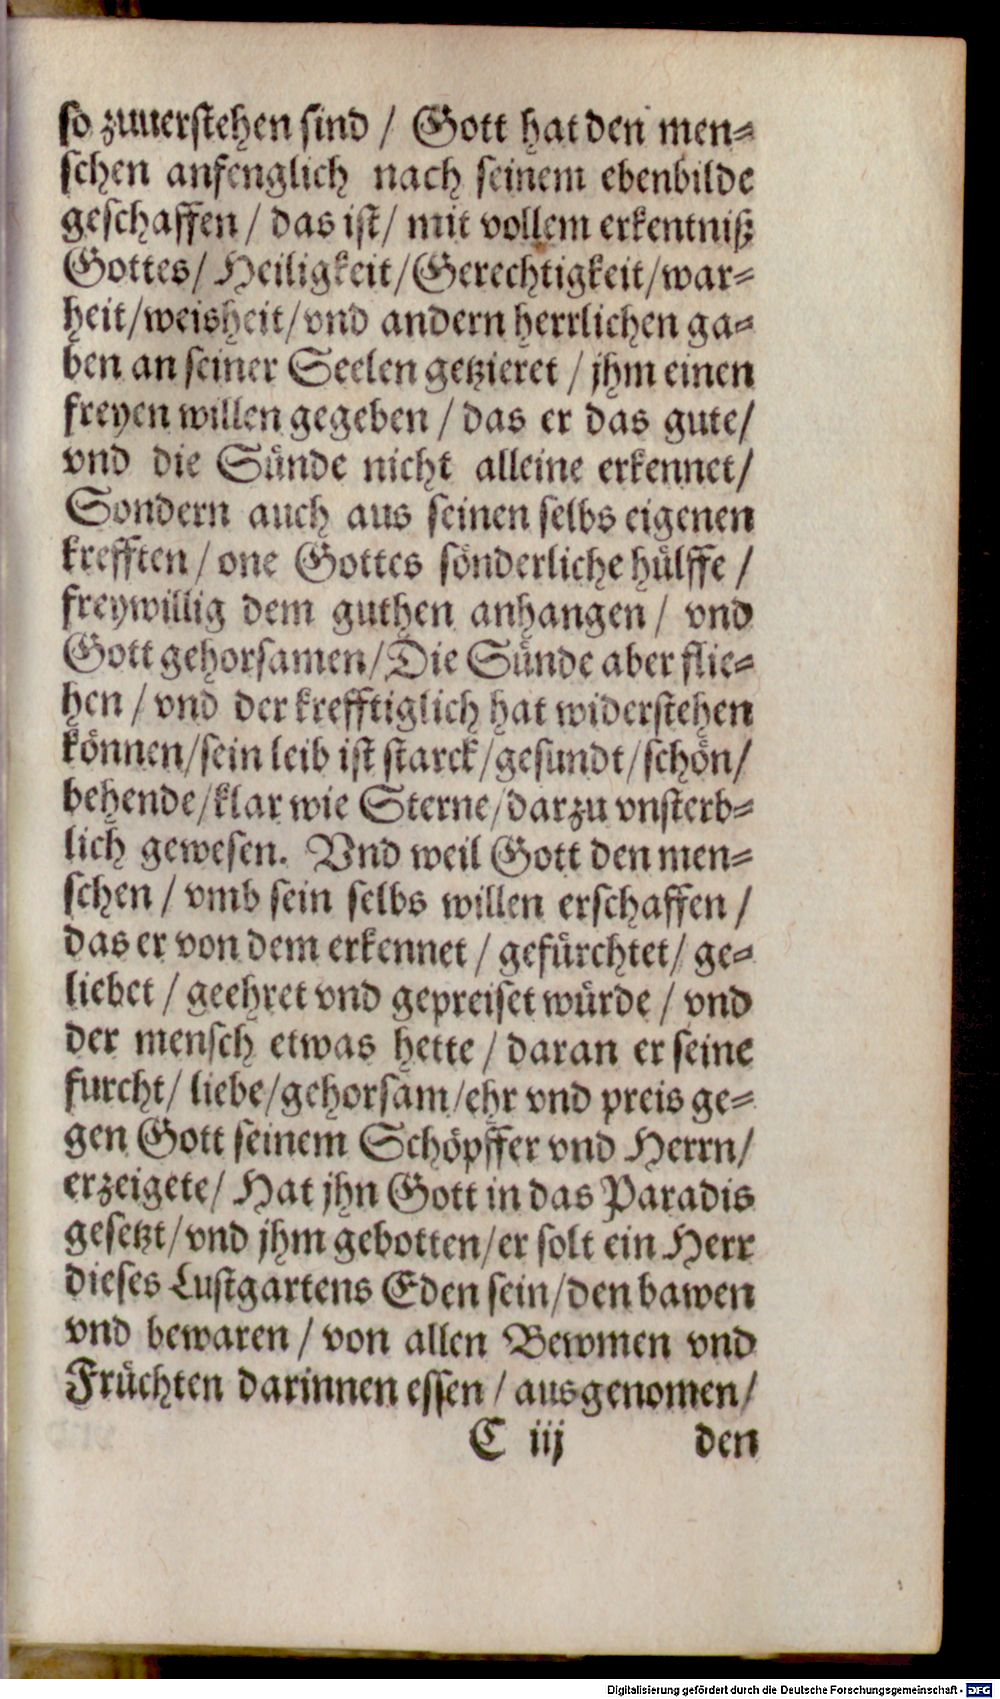 so zuuerstehen sind / Gott hat den men⸗
schen anfenglich nach seinem ebenbilde
geschaffen / das ist / mit vollem erkentniß
Gottes / Heiligkeit / Gerechtigkeit / war⸗
heit / weisheit / vnd andern herrlichen ga⸗
ben an seiner Seelen getzieret / jhm einen
freyen willen gegeben / das er das gute /
vnd die Sünde nicht alleine erkennet /
Sondern auch aus seinen selbs eigenen
krefften / one Gottes sönderliche hülffe /
freywillig dem guthen anhangen / vnd
Gott gehorsamen / Die Sünde aber flie⸗
hen / vnd der krefftiglich hat widerstehen
können / sein leib ist starck / gesundt / schön /
behende / klar wie Sterne / darzu vnsterb⸗
lich gewesen. Vnd weil Gott den men⸗
schen / vmb sein selbs willen erschaffen /
das er von dem erkennet / gefürchtet / ge⸗
liebet / geehret vnd gepreiset würde / vnd
der mensch etwas hette / daran er seine
furcht / liebe / gehorsam / ehr vnd preis ge⸗
gen Gott seinem Schöpffer vnd Herrn /
erzeigete / Hat jhn Gott in das Paradis
gesetzt / vnd jhm gebotten / er solt ein Herr
dieses Lustgartens Eden sein / den bawen
vnd bewaren / von allen Bewmen vnd
Früchten darinnen essen / ausgenomen /
C iij den
Digitalisierung gefördert durch die Deutsche Forschungsgemeinschaft - DFG